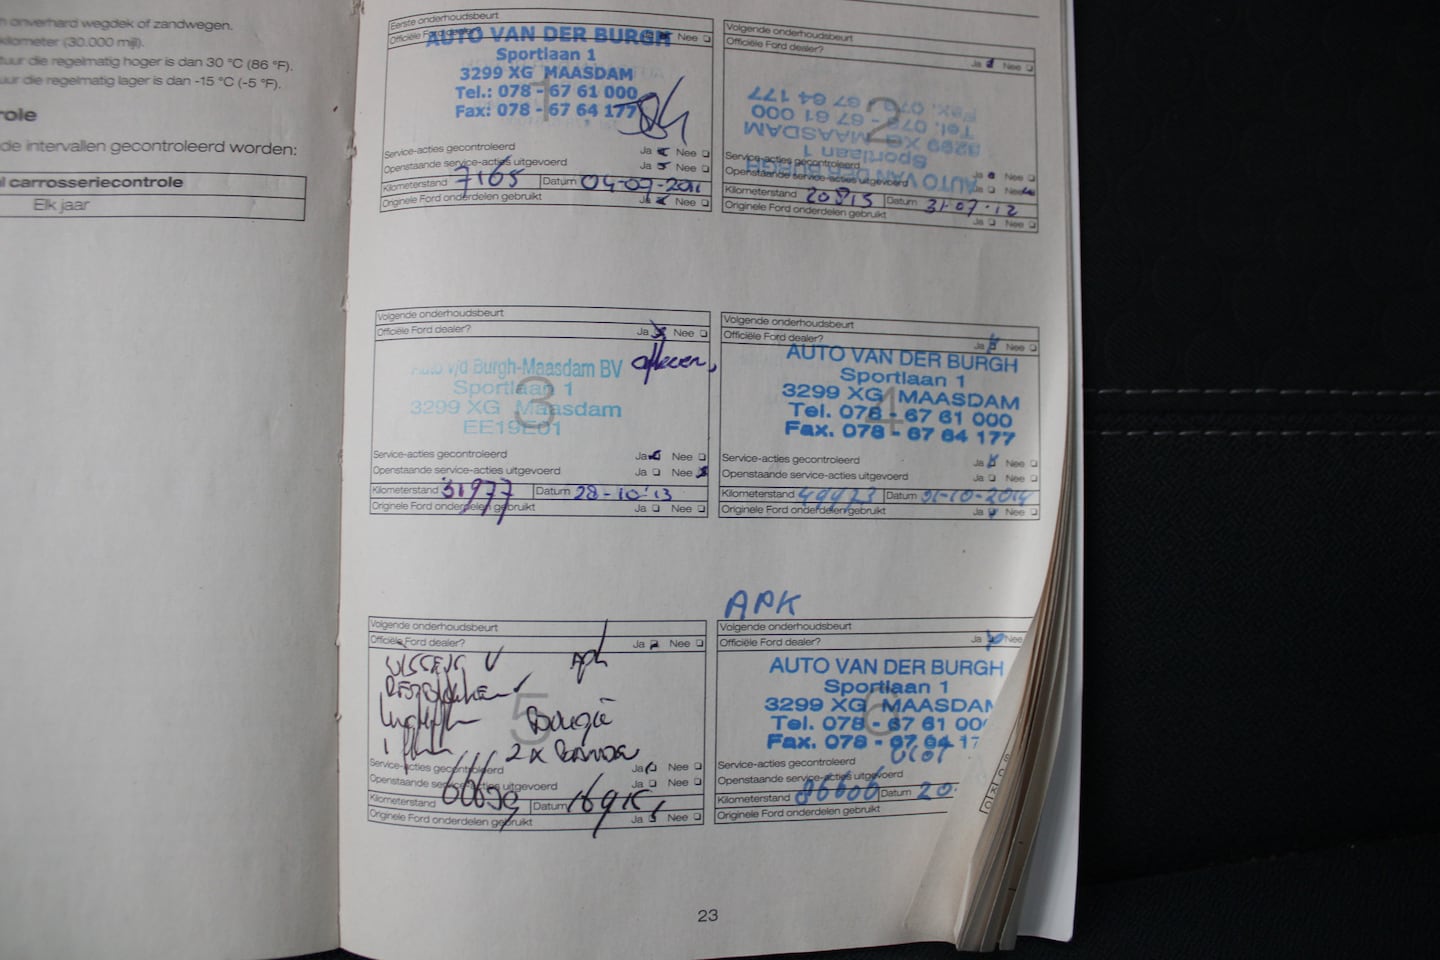 onverhard wegdek of zandwegen.
kilometer (30.000 mijl).
tuur die regelmatig hoger is dan 30 °C (86 °F).
uur die regelmatig lager is dan -15 °C (-5 °F).
role
de intervallen gecontroleerd worden:
l carrosseriecontrole
Elk jaar
Eerste onderhoudsbeurt
Officiële Ford dealer? Ja Nee
AUTO VAN DER BURGH
Sportlaan 1
3299 XG MAASDAM
Tel.: 078 - 67 61 000
Fax: 078 - 67 64 177
1
Service-acties gecontroleerd Ja Nee
Openstaande service-acties uitgevoerd Ja Nee
Kilometerstand 7165 Datum 04-07-2011
Originele Ford onderdelen gebruikt Ja Nee
Volgende onderhoudsbeurt
Officiële Ford dealer? Ja Nee
AUTO VAN DER BURGH
Sportlaan 1
3299 XG MAASDAM
Tel. 078 - 67 61 000
Fax. 078 - 67 64 177
2
Service-acties gecontroleerd Ja Nee
Openstaande service-acties uitgevoerd Ja Nee
Kilometerstand 20815 Datum 31-07-12
Originele Ford onderdelen gebruikt Ja Nee
Volgende onderhoudsbeurt
Officiële Ford dealer? Ja Nee
Auto v/d Burgh-Maasdam BV
Sportlaan 1
3299 XG Maasdam
EE19E01
3
Service-acties gecontroleerd Ja Nee
Openstaande service-acties uitgevoerd Ja Nee
Kilometerstand 31977 Datum 28-10-'13
Originele Ford onderdelen gebruikt Ja Nee
Volgende onderhoudsbeurt
Officiële Ford dealer? Ja Nee
AUTO VAN DER BURGH
Sportlaan 1
3299 XG MAASDAM
Tel. 078 - 67 61 000
Fax. 078 - 67 64 177
4
Service-acties gecontroleerd Ja Nee
Openstaande service-acties uitgevoerd Ja Nee
Kilometerstand 49473 Datum 31-10-2014
Originele Ford onderdelen gebruikt Ja Nee
Volgende onderhoudsbeurt
Officiële Ford dealer? Ja Nee
5
Bougie
2 x
Service-acties gecontroleerd Ja Nee
Openstaande service-acties uitgevoerd Ja Nee
Kilometerstand Datum
Originele Ford onderdelen gebruikt Ja Nee
APK
Volgende onderhoudsbeurt
Officiële Ford dealer? Ja Nee
AUTO VAN DER BURGH
Sportlaan 1
3299 XG MAASDAM
Tel. 078 - 67 61 00
Fax. 078 - 67 64 17
6
Service-acties gecontroleerd
Openstaande service-acties uitgevoerd
Kilometerstand 86606 Datum 20-
Originele Ford onderdelen gebruikt
23